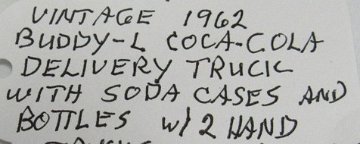 VINTAGE 1962
BUDDY-L COCA-COLA
DELIVERY TRUCK
WITH SODA CASES AND
BOTTLES W/ 2 HAND